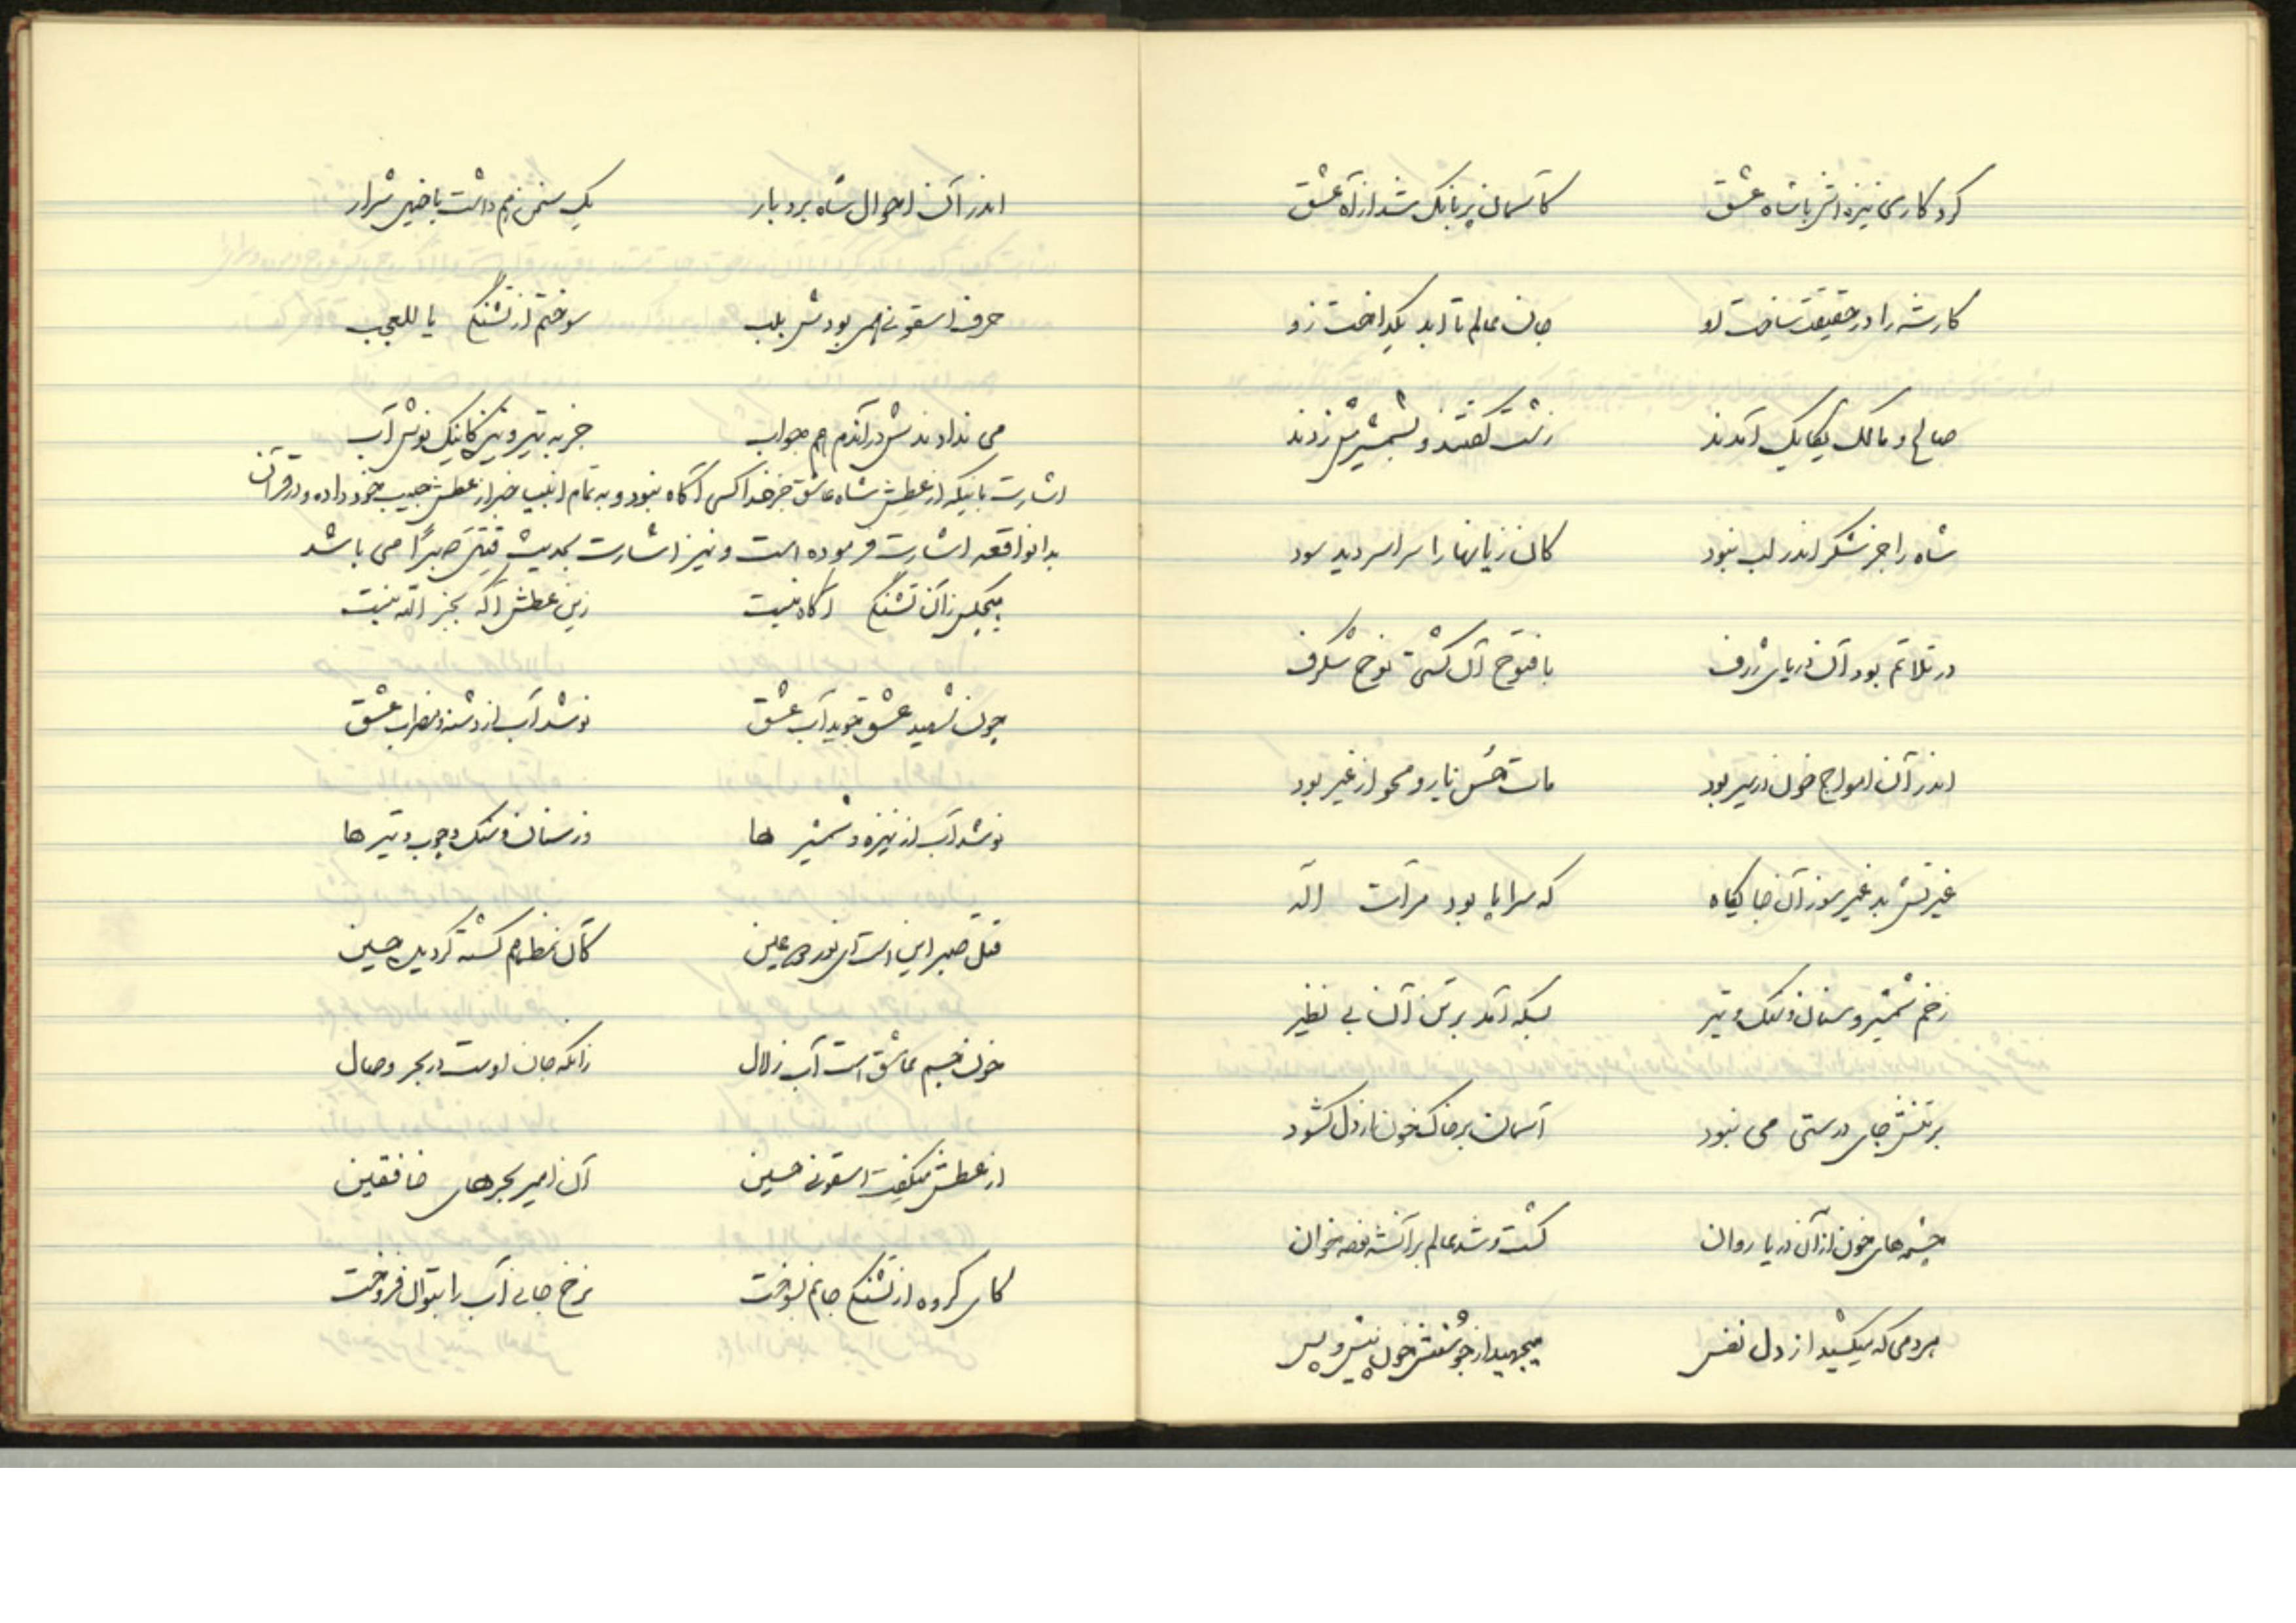 کرد کاری نیزه اش با شاه عشق کآسمان پر بانگ شد از آه عشق
کار شه را در حقیقت ساخت او جان عالم تا ابد بگداخت زو
صالح و مالک یکایک آمدند زشت گفتند و بشمشیرش زدند
شاه را جز شکر اندر لب نبود کان زیانها را سراسر دید سود
در تلاتم بود آن دریای ژرف با فتوح آن کشتی نوح شگرف
اندر آن امواج خون در سیر بود مات حُسن یار و محو از غیر بود
غیرتش بد غیر سوز آن جایگاه که سراپا بود مرآت اله
زخم شمشیر و سنان و سنگ و تیر بسکه آمد بر تن آن بی نظیر
بر تنش جای درستی می نبود آسمان بر خاک خون از دل گشود
چشمه های خون از آن دریا روان گشت و شد عالم بر آنشه نوحه خوان
هر دمی که میکشید از دل نفس میجهید از جوشنش خون پیش و پس
اندر آن احوال شاه بردبار یک سخن هم داشت با خیل شرار
حرف اسقونی همی بودش بلب سوختم از تشنگی یا للعجب
می ندادندش در آندم هم جواب جز به تیر و نیزه کاینک نوش آب
اشارت باینکه از عطش شاه عاشق جز خدا کسی آگاه نبود و به تمام انبیا خبر از عطش حبیب خود داده و در قرآن
بدانواقعه اشارت فرموده است و نیز اشارت بحدیث قُتِلَ صَبراً می باشد
هیچکس زآن تشنگی آگاه نیست زین عطش آگه بجز الله نیست
چون شهید عشق جوید آب عشق نوشد آب از دشنه و ضراب عشق
نوشد آب از نیزه و شمشیر ها وز سنان و سنگ و چوب و تیر ها
قتل صبر این است ای نور دو عین کآن مظلوم کشته گردید حسین
خون جسم عاشق است آب زلال زانکه جان اوست در بحر وصال
از عطش میگفت اسقونی حسین آن امیر بحرهای خافقین
کای گروه از تشنگی جانم بسوخت نرخ جانی آب را بتوان فروخت